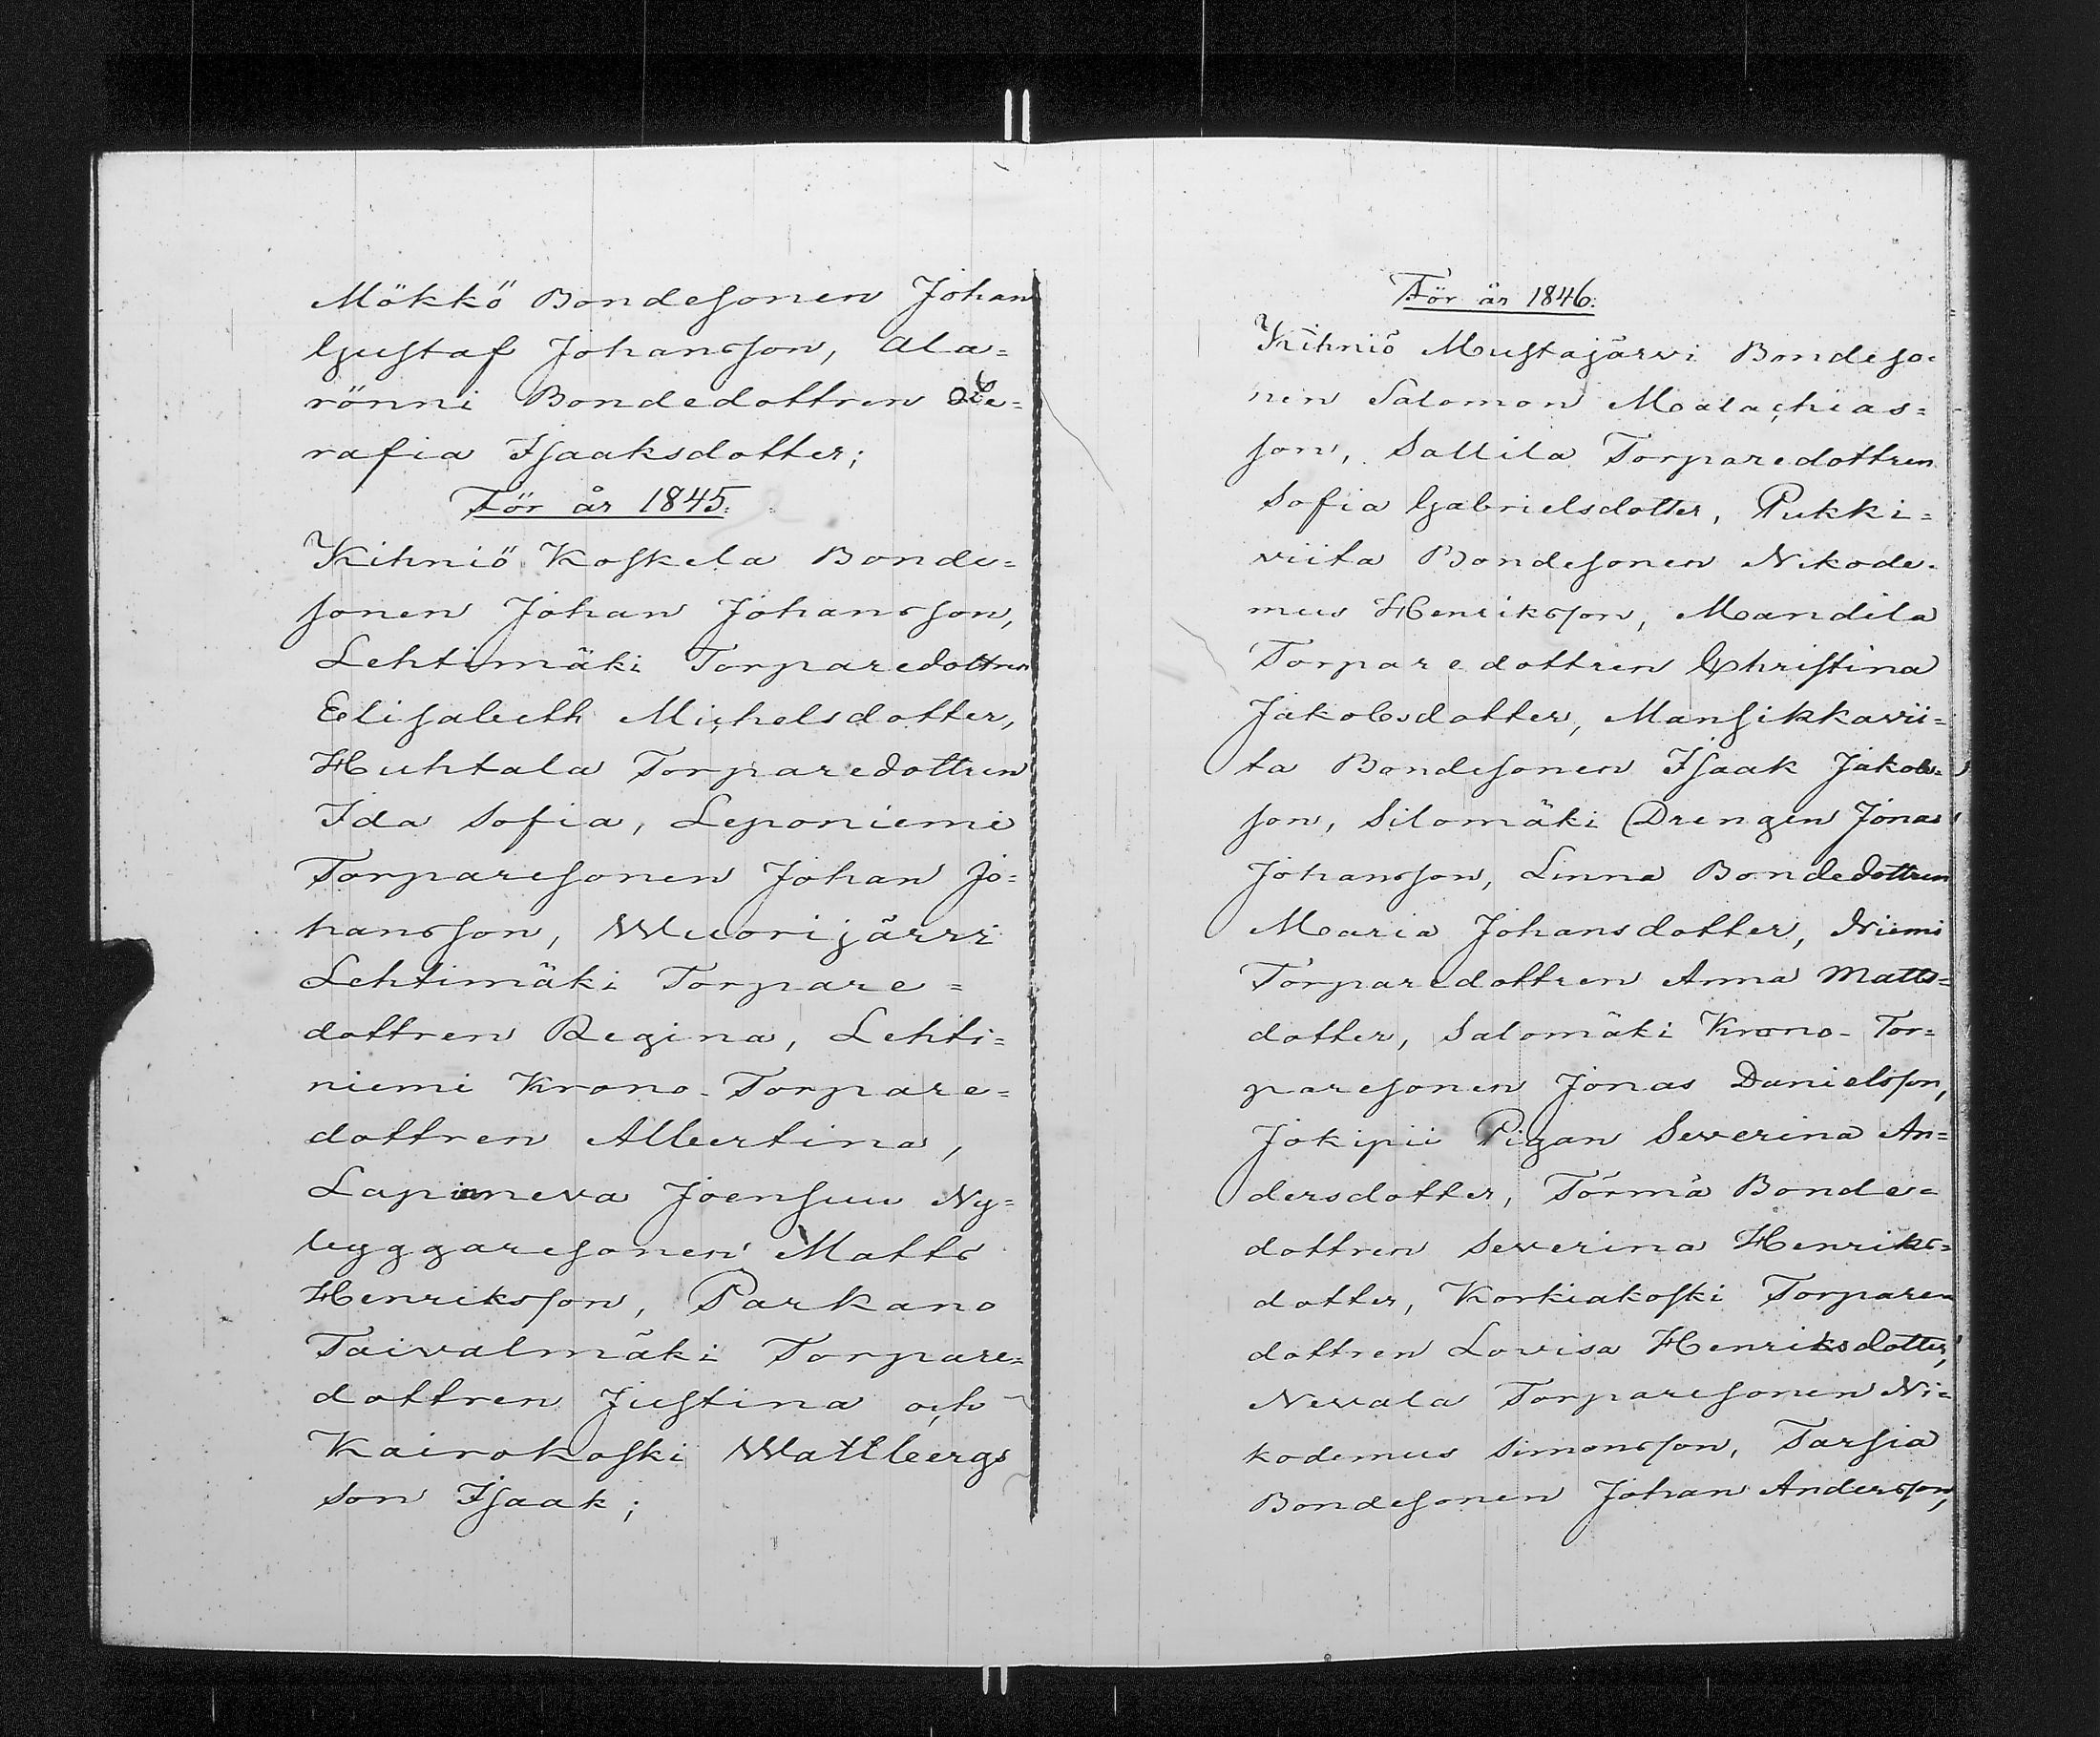 Mökkö Bondesonen Johan
Gustaf Johansson, Ala=
rönni Bondedottren Se=
rafia Isaaksdotter;
För år 1845.
Kihniö Koskela Bonde=
sonen Johan Johansson,
Lehtimäki Torparedottren
Elisabeth Michelsdotter,
Huhtala Torparedottren
Ida Sofia, Leponiemi
Torparesonen Johan Jo=
hansson, Wuorijärvi
Lehtimäki Torpare=
dottren Regina, Lehti=
niemi Krono-Torpare=
dottren Albertina,
Lapinneva Joensuu Ny=
byggaresonen Matts
Henriksson, Parkano
Taivalmäki Torpare=
dottren Justina och
Kairokoski Wattbergs
son Isaak;
För år 1846.
Kihniö Mustajärvi Bondeso=
nen Salomon Malachias=
son, Sallila Torparedottren
Sofia Gabrielsdotter, Pukki=
viita Bondesonen Nikode=
mus Henriksson, Mandila
Torparedottren Christina
Jakobsdotter, Mansikkavii=
ta Bondesonen Isaak Jakobs=
son, Silomäki Drengen Jonas
Johansson, Linna Bondedottren
Maria Johansdotter, Niemi
Torparedottren Anna Matts=
dotter, Salomäki Krono-Tor=
paresonen Jonas Danielsson,
Jokipii Pigan Severina An=
dersdotter, Törmä Bonde=
dottren Severina Henriks=
dotter, Korkiakoski Torpare=
dottren Lovisa Henriksdotter,
Nevala Torparesonen Ni=
kodemus Simonsson, Tarsia
Bondesonen Johan Andersson,